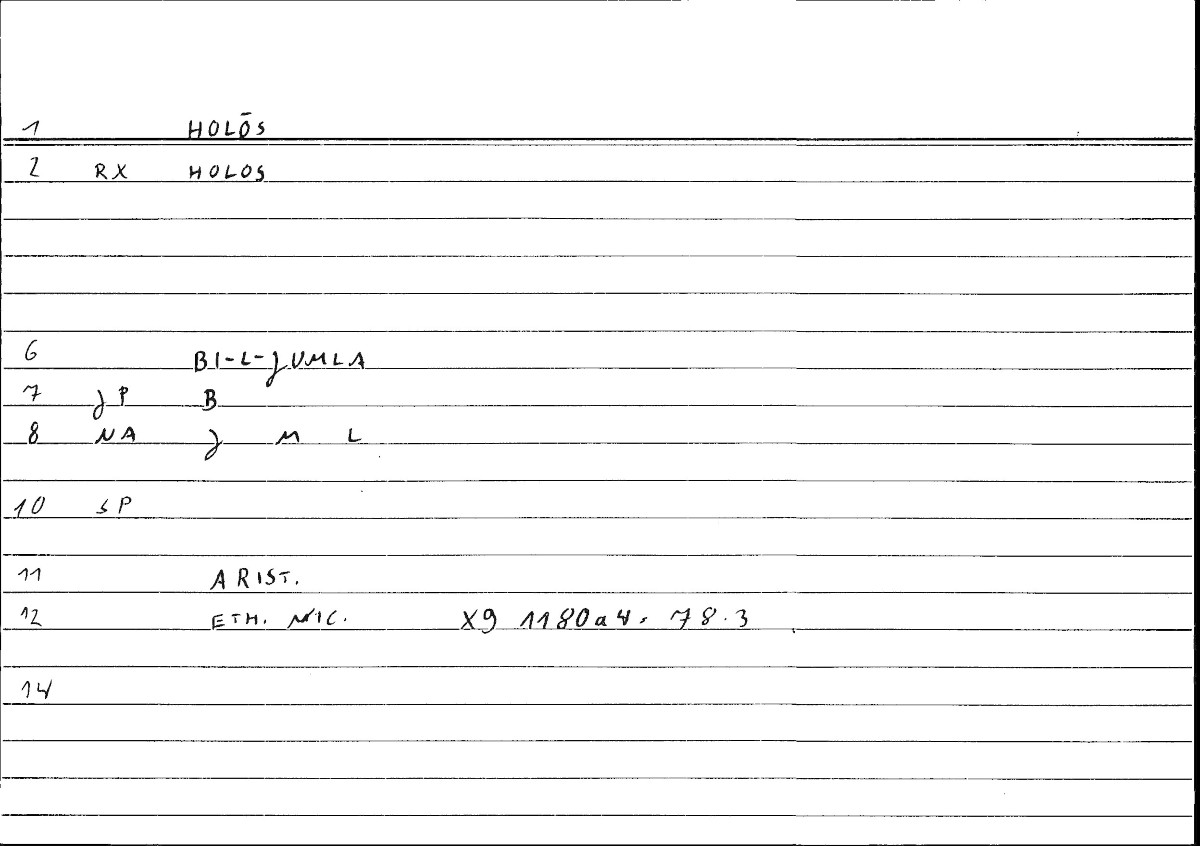 1 HOLŌS
2 RX HOLOS
6 BI-L-JUMLA
7 JP B
8 NA J M L
10 SP
11 ARIST.
12 ETH. NIC. X9 1180a4. 78.3
14